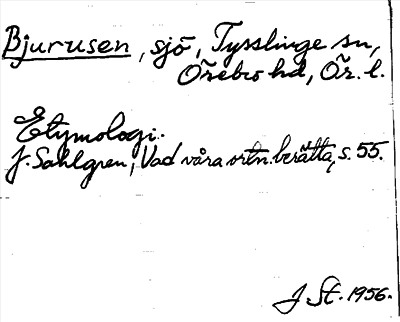 Bjurusen, sjö, Tysslinge sn,
Örebro hd, Ör. l.
Etymologi.
J. Sahlgren, Vad våra ortn. berätta, s. 55.
J St. 1956.